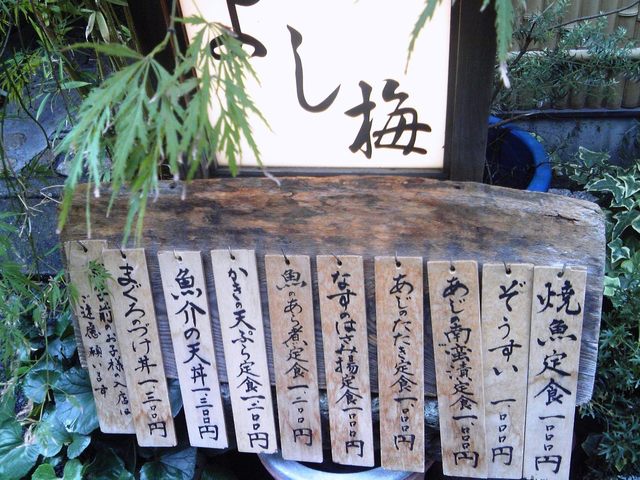 よし梅
焼魚定食一、〇〇〇円
ぞうすい 一、〇〇〇円
あじ南蛮漬定食一、〇〇〇円
あじのたたき定食一、〇〇〇円
なすのはさみ揚定食一、〇〇〇円
魚のあら煮定食一、二〇〇円
かきの天ぷら定食一、二〇〇円
魚介の天丼一、三〇〇円
まぐろのづけ丼一、三〇〇円
前のお子様の入店は
ご遠慮願います